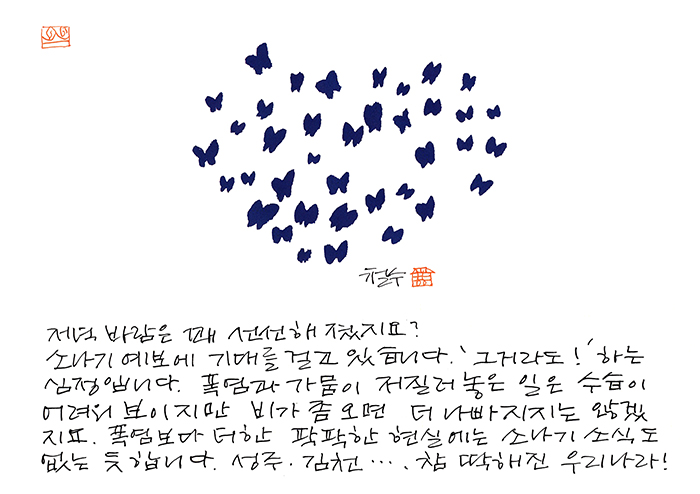 철수
저녁 바람은 꽤 선선해 졌지요?
소나기 예보에 기대를 걸고 있습니다. '그거라도!' 하는
심정입니다. 폭염과 가뭄이 저질러 놓은 일은 수습이
어려워 보이지만 비가 좀 오면 더 나빠지지는 않겠
지요. 폭염보다 더한 팍팍한 현실에는 소나기 소식도
없는 듯합니다. 성주. 김천…. 참 딱해진 우리나라!